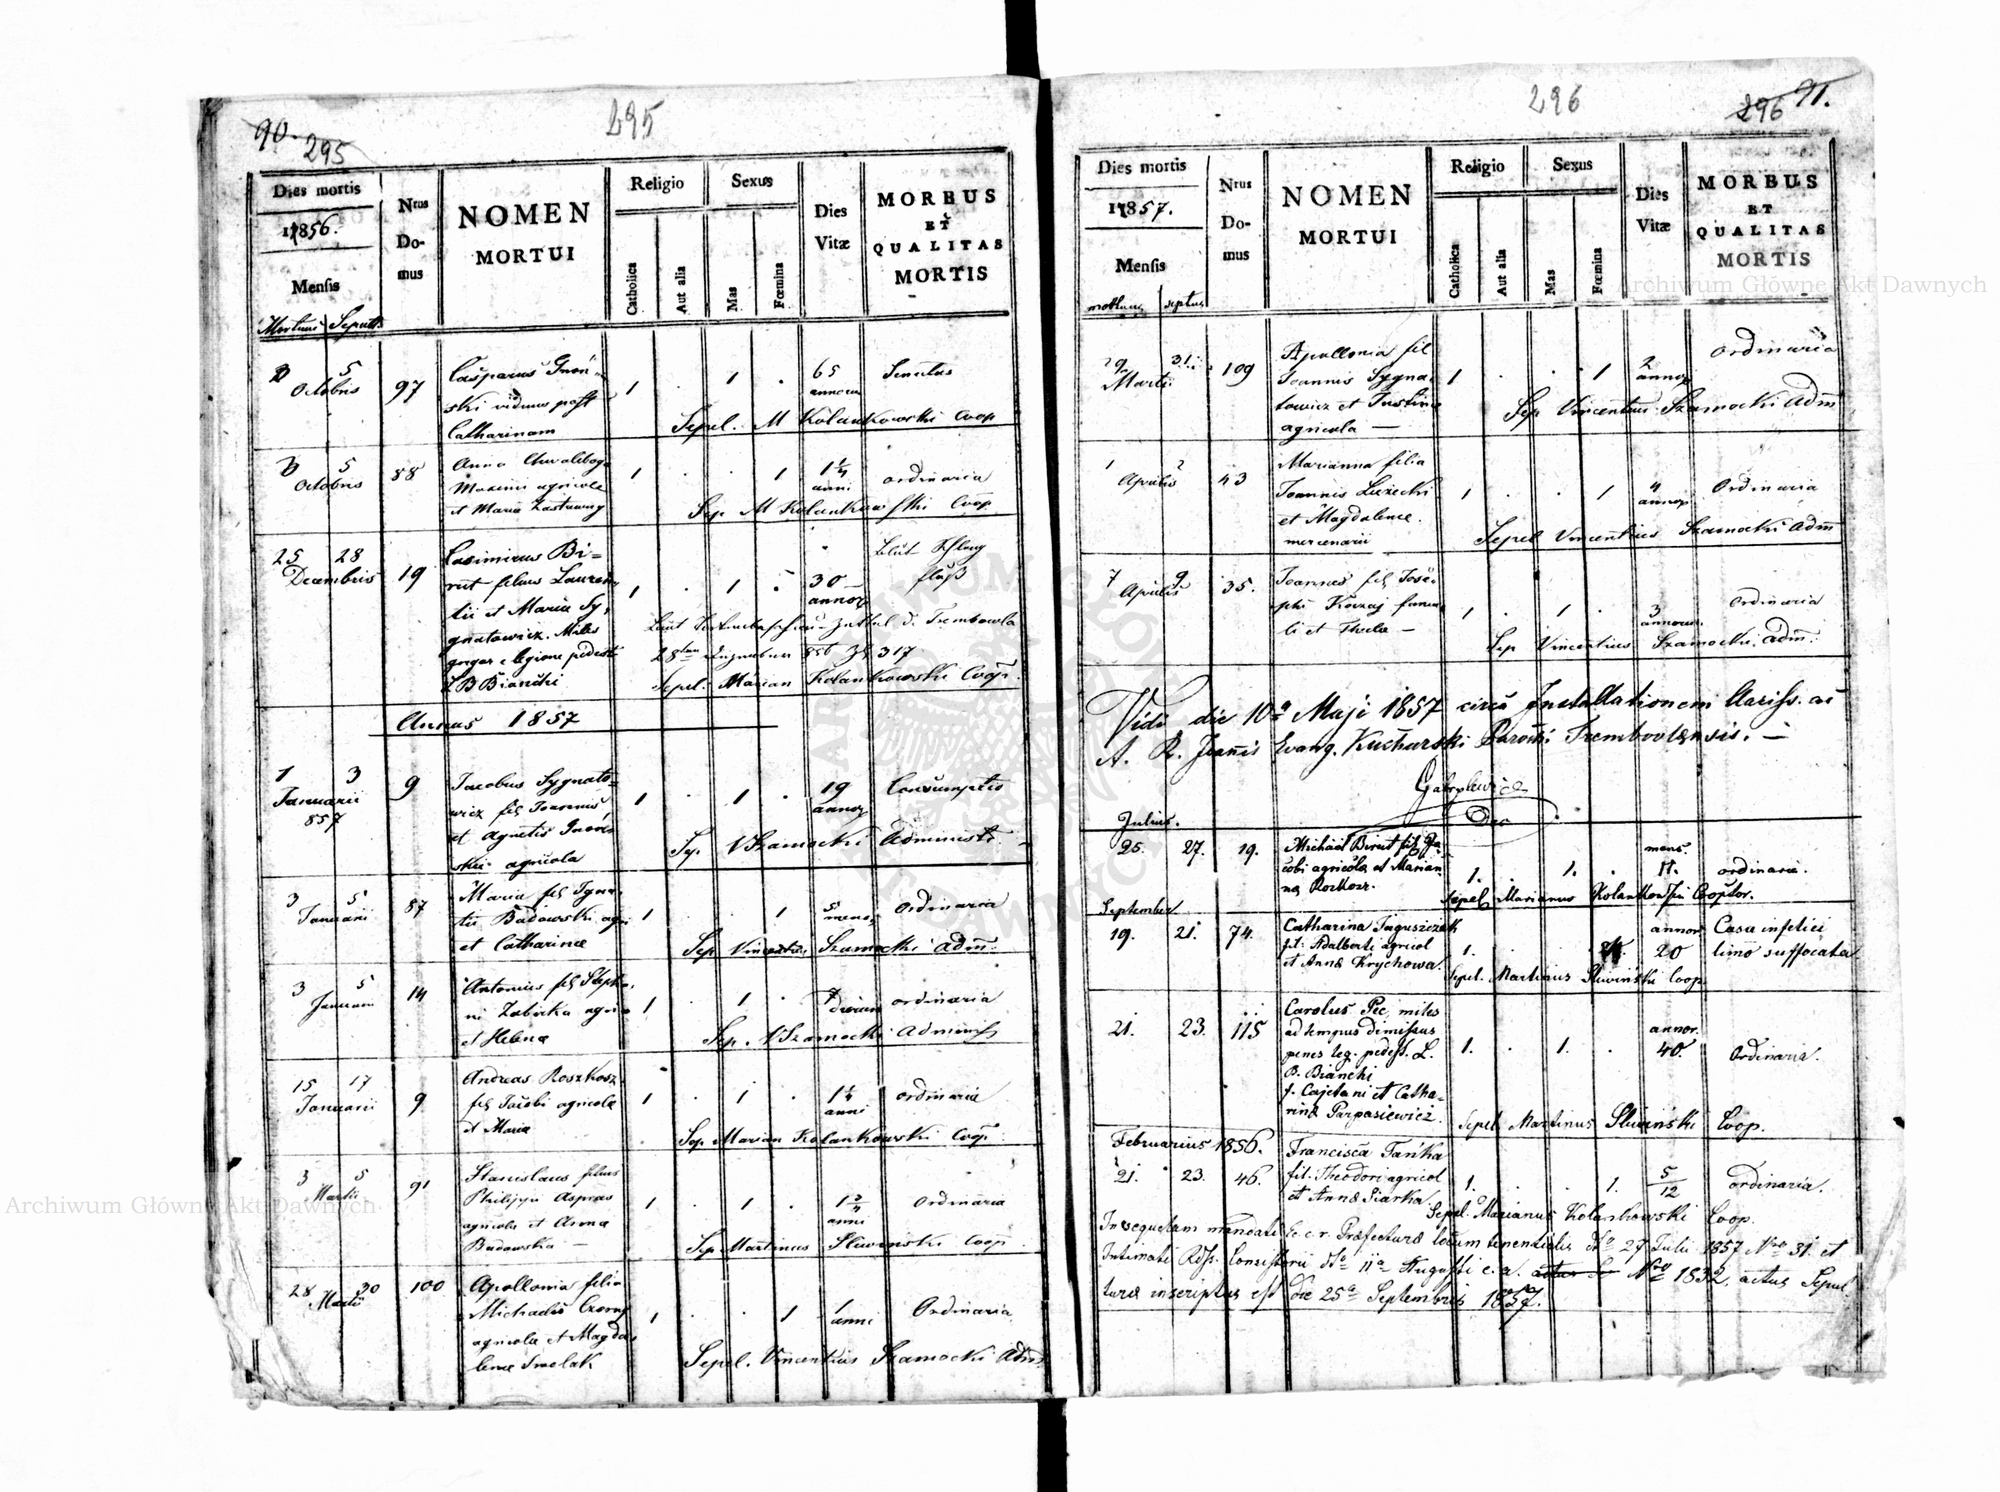 90.
295
295
Dies mortis
1856.
Mensis
Mortuus Sepult.
Nrus
Do-
mus
NOMEN
MORTUI
Religio
Catholica
Aut alia
Sexus
Mas
Fœmina
Dies
Vitæ
MORBUS
ET
QUALITAS
MORTIS
5
Octobris
97
Casparus
ski viduus post
Catharinam
1 . 1 .
65
annorum
Senectus
Sepel. M Kolankowski Coop
3 5
Octobris
88
Anna
Maximi agricolæ
et Maria
1 . . 1
1 1/4
anni
ordinaria
Sep. M Kolankowski Coop.
25 28
Decembris
19
Casimirus Bi=
rut filius Lauren
tii et Maria Sy,
gnatowicz. Miles
gregar e legione pedest
L B Bianchi
1 . 1 .
30
annor
Blut Schlag
fluß
Laut Zettel d. Trembowla
28ten 856 317
Sepel. Marian Kolankowski Coop.
Annus 1857
1 3
Januarii
857
9
Jacobus Sygnato=
wicz fil Joannis
et Agnetis
ski agricola
1 . 1 .
19
annor
Consumptio
Sep. V Szamocki Administr.
3 5
Januarii
87
Maria fil Igna,
tii Badowski agri
et Catharinæ
1 . . 1
5
mens,
Ordinaria
Sep Vincentius Szamocki Adm.
3 5
Januarii
14
Antonius fil Stepha,
ni Zabirka agri
et Helenæ
1 . 1 .
7
dierum
ordinaria
Sep. V Szamocki Adminis
15 17
Januarii
9
Andreas Roszkosz
fil Jacobi agricolæ
et Maria
1 . 1 .
1 1/4
anni
ordinaria
Sep Marian Kolankowski Coop
3 5
Martii
91
Stanislaus filius
Philippi Aspras
agricola et Anna
Badowska —
1 . 1 .
anni
Ordinaria
Sep Martinus Sliwinski Coop
28 30
Martii
100
Apollonia filia
Michaelis Czorny
agricola et Magda
lenæ Smolak
1 . . 1
1
anni
Ordinaria
Sepel. Vincentius Szamocki Adm
296
296 91.
Dies mortis
1857.
Mensis
mortuus septus
Nrus
Do-
mus
NOMEN
MORTUI
Religio
Catholica
Aut alia
Sexus
Mas
Fœmina
Dies
Vitæ
MORBUS
ET
QUALITAS
MORTIS
29 31
Martii
109
Apollonia fil
Joannis Sygna
towicz et Justina
agricola —
1 . . 1
2
annor
Ordinaria
Sep Vincentius Szamocki Adm
1 2
Aprilis
43
Marianna filia
Joannis Luzecki
et Magdalenæ.
mercenarii
1 . . 1
4
annor
Ordinaria
Sepel Vincentius Szamocki Adm
7 9
Aprilis
35.
Joannes fil Jose,
phi Korzaj famu
li et Thecla —
1 . 1 .
3
annorum
Ordinaria
Sep Vincentius Szamocki Adm.
Vidi die 10a Maji 1857 circa Installationem Clariss. ac
A. R. Joannis Evang. Kucharski Parochi Trembovlensis. —
Gabrylewicz
Dec
Julius.
25. 27. 19.
Michael Birut fil Ja
cobi agricola et Marian
na Rozkosz.
1. . 1. .
mens.
11.
ordinaria.
Sepel Marianus Kolankowski Cooptor.
September
19. 21. 74.
Catharina Jaguszczak
f.l. Adalberti agricol
et Anna Krychowa.
1. . . 1.
annor
20
Casu infelici
limo suffocata
Sepel. Martinus Sliwiński Coop.
21. 23. 115
Carolus Pec, miles
ad tempus dimissus
penes leg. pedest. L.
B. Bianchi
f. Cajetani et Catha=
rina Parpasiewicz.
1. . 1. .
annor.
40.
Ordinaria.
Sepel Martinus Sliwinski Coop.
Februarius 1856.
21. 23. 46.
Francisca Tańka
fil. Theodori agricol
et Anna Siarka.
1. . . 1.
5/12
ordinaria.
Sepel. Marianus Kolankowski Coop.
In sequelam mandati C. c. r. Præfecturæ locum tenentialis dto 27 Julii 1857 Nro 31. et
Intimati Rdss. Consistorii dto 11a Augusti c. a. Nro 1832, actus Sepul
turæ inscriptus est die 25a Septembris 1857.
Archiwum Główne Akt Dawnych
Archiwum Główne Akt Dawnych
ARCHIWUM GŁÓWNE AKT DAWNYCH